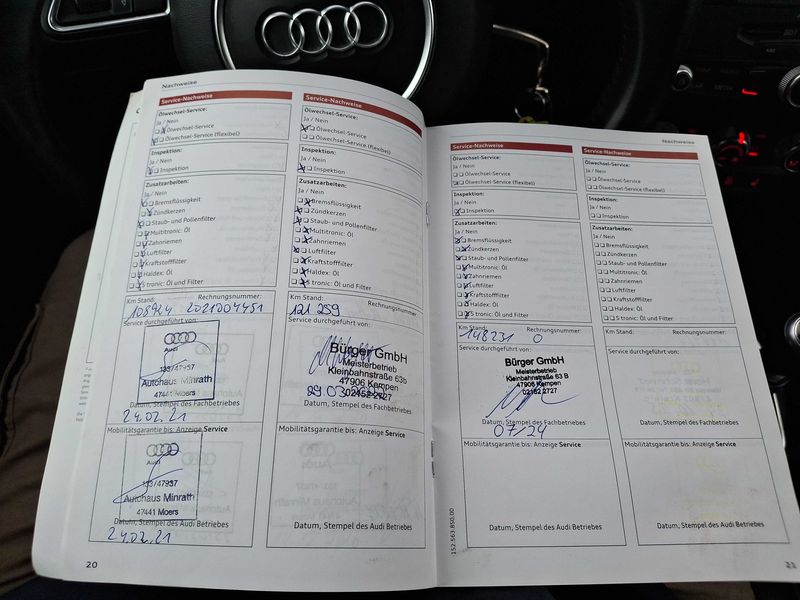 Nachweise
Service-Nachweise
Ölwechsel-Service:
Ja / Nein
Ölwechsel-Service
Ölwechsel-Service (flexibel)
Inspektion:
Ja / Nein
Inspektion
Zusatzarbeiten:
Ja / Nein
Bremsflüssigkeit
Zündkerzen
Staub- und Pollenfilter
Multitronic: Öl
Zahnriemen
Luftfilter
Kraftstofffilter
Haldex: Öl
S tronic: Öl und Filter
Km Stand: Rechnungsnummer:
108924 2021004451
Service durchgeführt von:
Audi
133/47937
Autohaus Minrath
47441 Moers
Datum, Stempel des Fachbetriebes
24.02.21
Mobilitätsgarantie bis: Anzeige Service
Audi
133/47937
Autohaus Minrath
47441 Moers
Datum, Stempel des Audi Betriebes
24.02.21
20
Service-Nachweise
Ölwechsel-Service:
Ja / Nein
Ölwechsel-Service
Ölwechsel-Service (flexibel)
Inspektion:
Ja / Nein
Inspektion
Zusatzarbeiten:
Ja / Nein
Bremsflüssigkeit
Zündkerzen
Staub- und Pollenfilter
Multitronic: Öl
Zahnriemen
Luftfilter
Kraftstofffilter
Haldex: Öl
S tronic: Öl und Filter
Km Stand: Rechnungsnummer:
121 259
Service durchgeführt von:
Bürger GmbH
Meisterbetrieb
Kleinbahnstraße 63b
47906 Kempen
02152 2727
Datum, Stempel des Fachbetriebes
Mobilitätsgarantie bis: Anzeige Service
Datum, Stempel des Audi Betriebes
Nachweise
Service-Nachweise
Ölwechsel-Service:
Ja / Nein
Ölwechsel-Service
Ölwechsel-Service (flexibel)
Inspektion:
Ja / Nein
Inspektion
Zusatzarbeiten:
Ja / Nein
Bremsflüssigkeit
Zündkerzen
Staub- und Pollenfilter
Multitronic: Öl
Zahnriemen
Luftfilter
Kraftstofffilter
Haldex: Öl
S tronic: Öl und Filter
Km Stand: Rechnungsnummer:
148231 0
Service durchgeführt von:
Bürger GmbH
Meisterbetrieb
Kleinbahnstraße 63 B
47906 Kempen
02152 2727
Datum, Stempel des Fachbetriebes
07/24
Mobilitätsgarantie bis: Anzeige Service
Datum, Stempel des Audi Betriebes
152.563.850.00
Service-Nachweise
Ölwechsel-Service:
Ja / Nein
Ölwechsel-Service
Ölwechsel-Service (flexibel)
Inspektion:
Ja / Nein
Inspektion
Zusatzarbeiten:
Ja / Nein
Bremsflüssigkeit
Zündkerzen
Staub- und Pollenfilter
Multitronic: Öl
Zahnriemen
Luftfilter
Kraftstofffilter
Haldex: Öl
S tronic: Öl und Filter
Km Stand: Rechnungsnummer:
Service durchgeführt von:
Datum, Stempel des Fachbetriebes
Mobilitätsgarantie bis: Anzeige Service
Datum, Stempel des Audi Betriebes
21